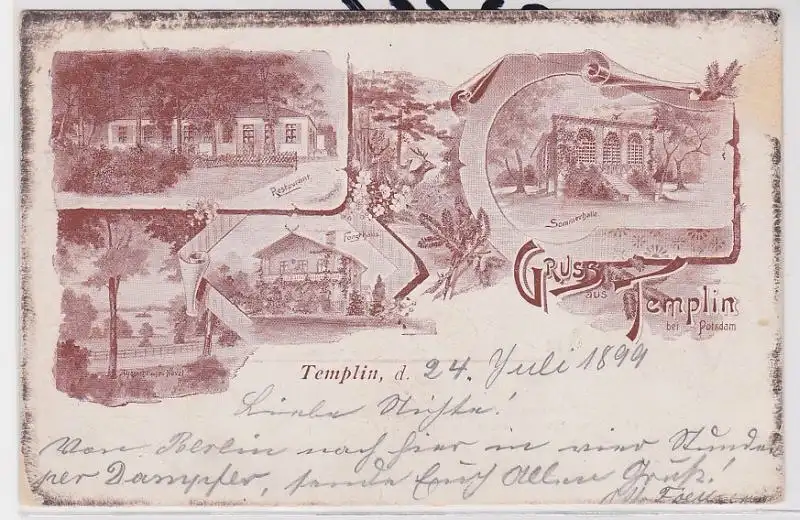 Restaurant
Sommerhalle.
Forsthaus
Gruss
aus
Templin
bei Potsdam
Templin, d. 24. Juli 1899
Liebe Nichte!
Von Berlin nach hier in vier Stunden
per Dampfer, sende Euch Allen Gruß!